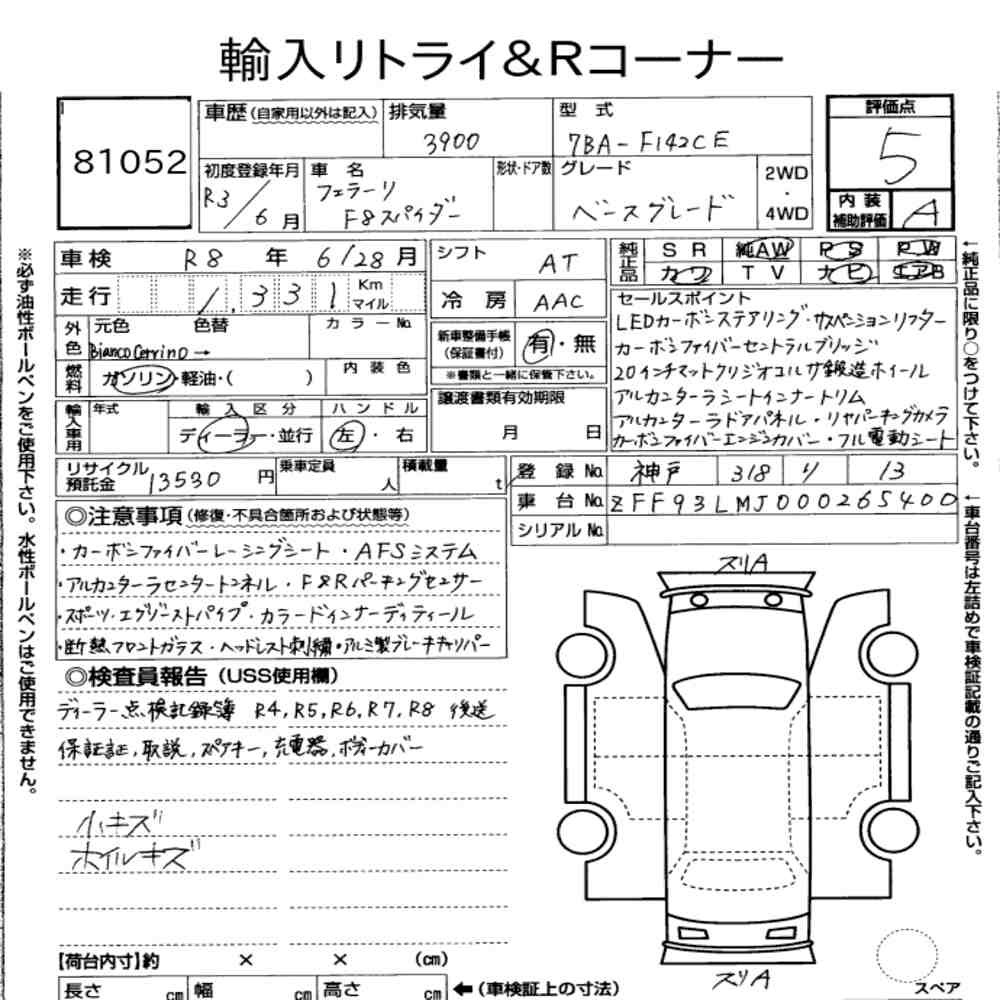 輸入リトライ&Rコーナー
81052
車歴(自家用以外は記入)
排気量
3900
型式
7BA-F142CE
評価点
5
初度登録年月
R3/6月
車名
フェラーリ
F8スパイダー
形状・ドア数
グレード
ベースグレード
2WD
・
4WD
内装
補助評価
A
車検 R8年 6/28月
走行 1,331 Km マイル
シフト AT
冷房 AAC
純正品
SR 純AW PS PW
カワ TV ナビ エアB
外色
元色 色替
Bianco Cervino→
カラーNo.
燃料
ガソリン・軽油・( )
内装色
新車整備手帳
(保証書付)
有・無
※書類と一緒に保管下さい。
セールスポイント
LEDカーボンステアリング・サスペンションリフター
カーボンファイバーセントラルブリッジ
20インチマットクリジオコルサ鍛造ホイール
アルカンターラシートインナートリム
アルカンターラドアパネル・リヤパーキングカメラ
カーボンファイバーエンジンカバー・フル電動シート
輸入車用
年式
輸入区分
ディーラー・並行
ハンドル
左・右
譲渡書類有効期限
月 日
リサイクル
預託金
13530円
乗車定員
人
積載量
t
登録No. 神戸 318 リ 13
車台No. ZFF93LMJ000265400
シリアルNo.
◎注意事項(修復・不具合箇所および状態等)
・カーボンファイバーレーシングシート・AFSシステム
・アルカンターラセンタートンネル・F&Rパーキングセンサー
・スポーツ・エグゾーストパイプ・カラードインナーディティール
・断熱フロントガラス・ヘッドレスト刺繍・アルミ製ブレーキキャリパー
◎検査員報告(USS使用欄)
ディーラー点検記録簿 R4,R5,R6,R7,R8 後送
保証証,取説,スペアキー,充電器,ボディーカバー
小キズ
ホイルキズ
スリA
スリA
スペア
【荷台内寸】約 × × (cm)
長さ cm 幅 cm 高さ cm ←(車検証上の寸法)
※必ず油性ボールペンをご使用下さい。水性ボールペンはご使用できません。
←純正品に限り○をつけて下さい。
←車台番号は左詰めで車検証記載の通りご記入下さい。